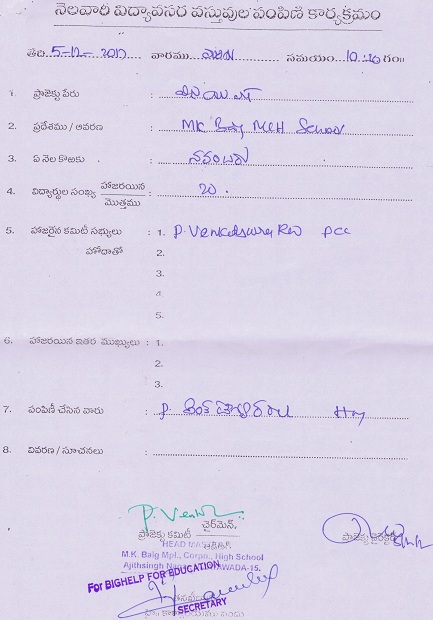 నెలవారీ విద్యావసర వస్తువుల పంపిణి కార్యక్రమం
తేది 5-12-2017 వారము సమయం 10:30 గం॥
1. ప్రాజెక్టు పేరు :
2. ప్రదేశము / ఆవరణ : MK Baig MCH School
3. ఏ నెల కొఱకు : నవంబరు
4. విద్యార్థుల సంఖ్య హాజరయిన : 20.
మొత్తము
5. హాజరైన కమిటీ సభ్యులు : 1. P. Venkateswara Rao PCC
హోదాతో 2.
3.
4.
5.
6. హాజరయిన ఇతర ముఖ్యులు : 1.
2.
3.
7. పంపిణీ చేసిన వారు : P. HM
8. వివరణ / సూచనలు :
P. Venk
ప్రాజెక్టు కమిటీ చైర్‌మెన్,
HEAD MASTER
M.K. Baig Mpl., Corpn., High School
Ajithsingh Nagar, VIJAYAWADA-15.
For BIGHELP FOR EDUCATION
SECRETARY